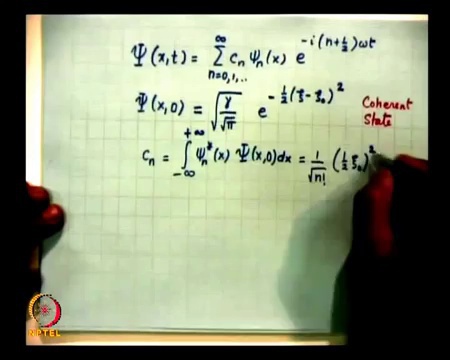 Ψ(x,t) = ∑_{n=0,1,..}^{∞} c_n ψ_n(x) e^{-i(n+1/2)ωt}
Ψ(x,0) = √(γ/√π) e^{-1/2(ξ-ξ₀)^2}
Coherent State
c_n = ∫_{-∞}^{+∞} ψ_n*(x) Ψ(x,0)dx = 1/√n! (1/2 ξ₀)^2
NPTEL